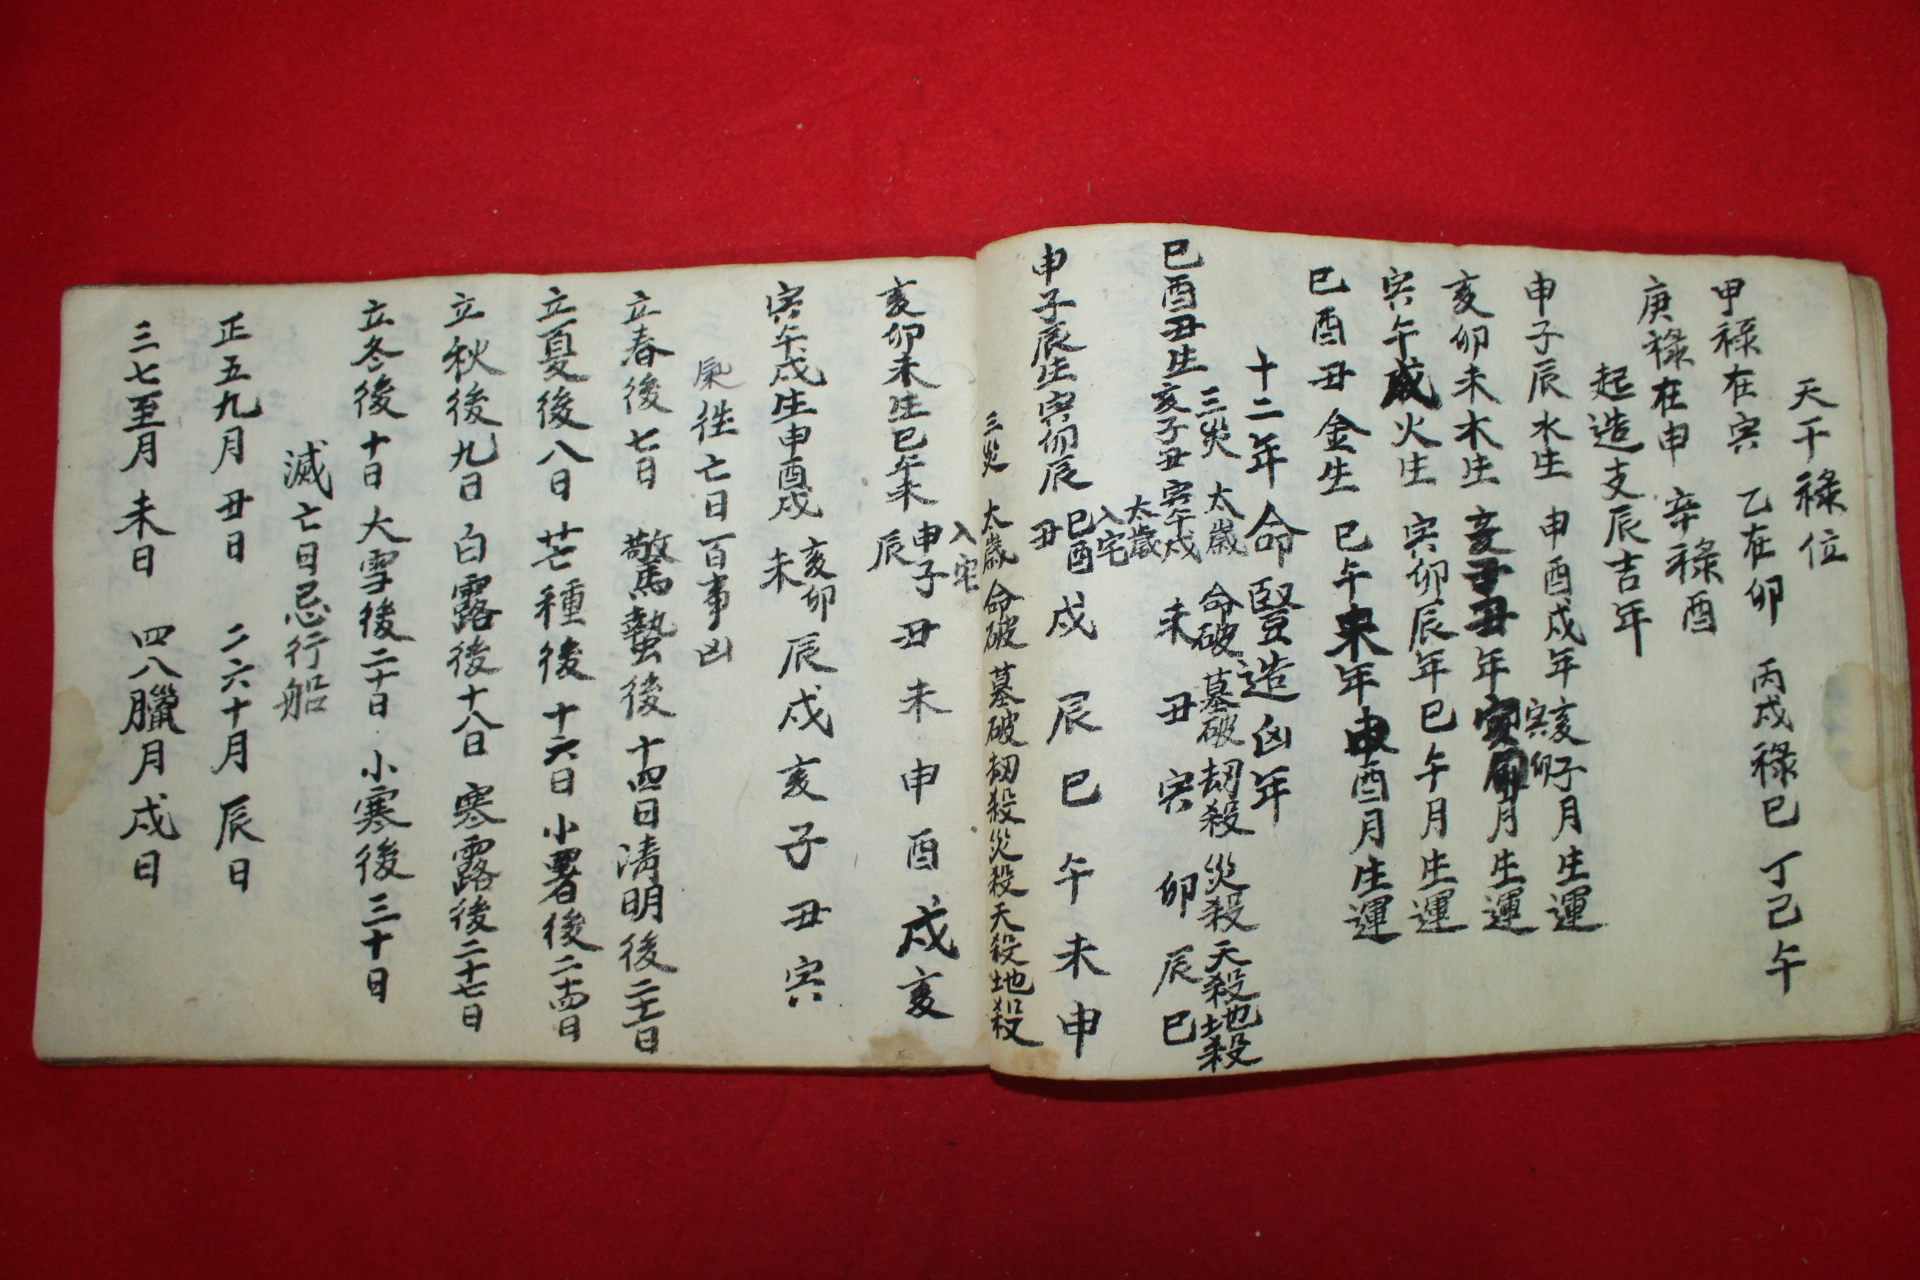 天干祿位
甲祿在寅 乙在卯 丙戊祿巳 丁己午
庚祿在申 辛祿酉
起造支辰吉年
申子辰水生 申酉戌年亥子月生運
寅卯
亥卯未木生 亥子丑年寅卯月生運
寅午戌火生 寅卯辰年巳午月生運
巳酉丑金生 巳午未年申酉月生運
十二年命豎造凶年
三災 太歲 命破 墓破 劫殺 災殺 天殺地殺
巳酉丑生亥子丑 寅午戌 未 丑 寅 卯 辰 巳
太歲
入宅
申子辰生寅卯辰 巳酉丑 戌 辰 巳 午 未 申
三災 太歲 命破 墓破 劫殺 災殺 天殺 地殺
入宅
亥卯未生巳午未 申子辰 丑 未 申 酉 戌 亥
寅午戌生申酉戌 亥卯未 辰 戌 亥 子 丑 寅
往亡日百事凶
立春後七日 驚蟄後十四日 清明後二十一日
立夏後八日 芒種後十六日 小暑後二十四日
立秋後九日 白露後十八日 寒露後二十七日
立冬後十日 大雪後二十日 小寒後三十日
滅亡日忌行船
正五九月丑日 二六十月辰日
三七至月未日 四八臘月戌日